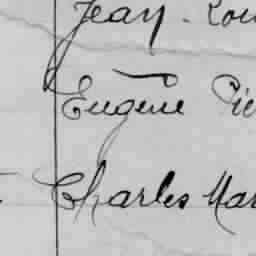 Jean - Lou
Eugène Pie
Charles Mar